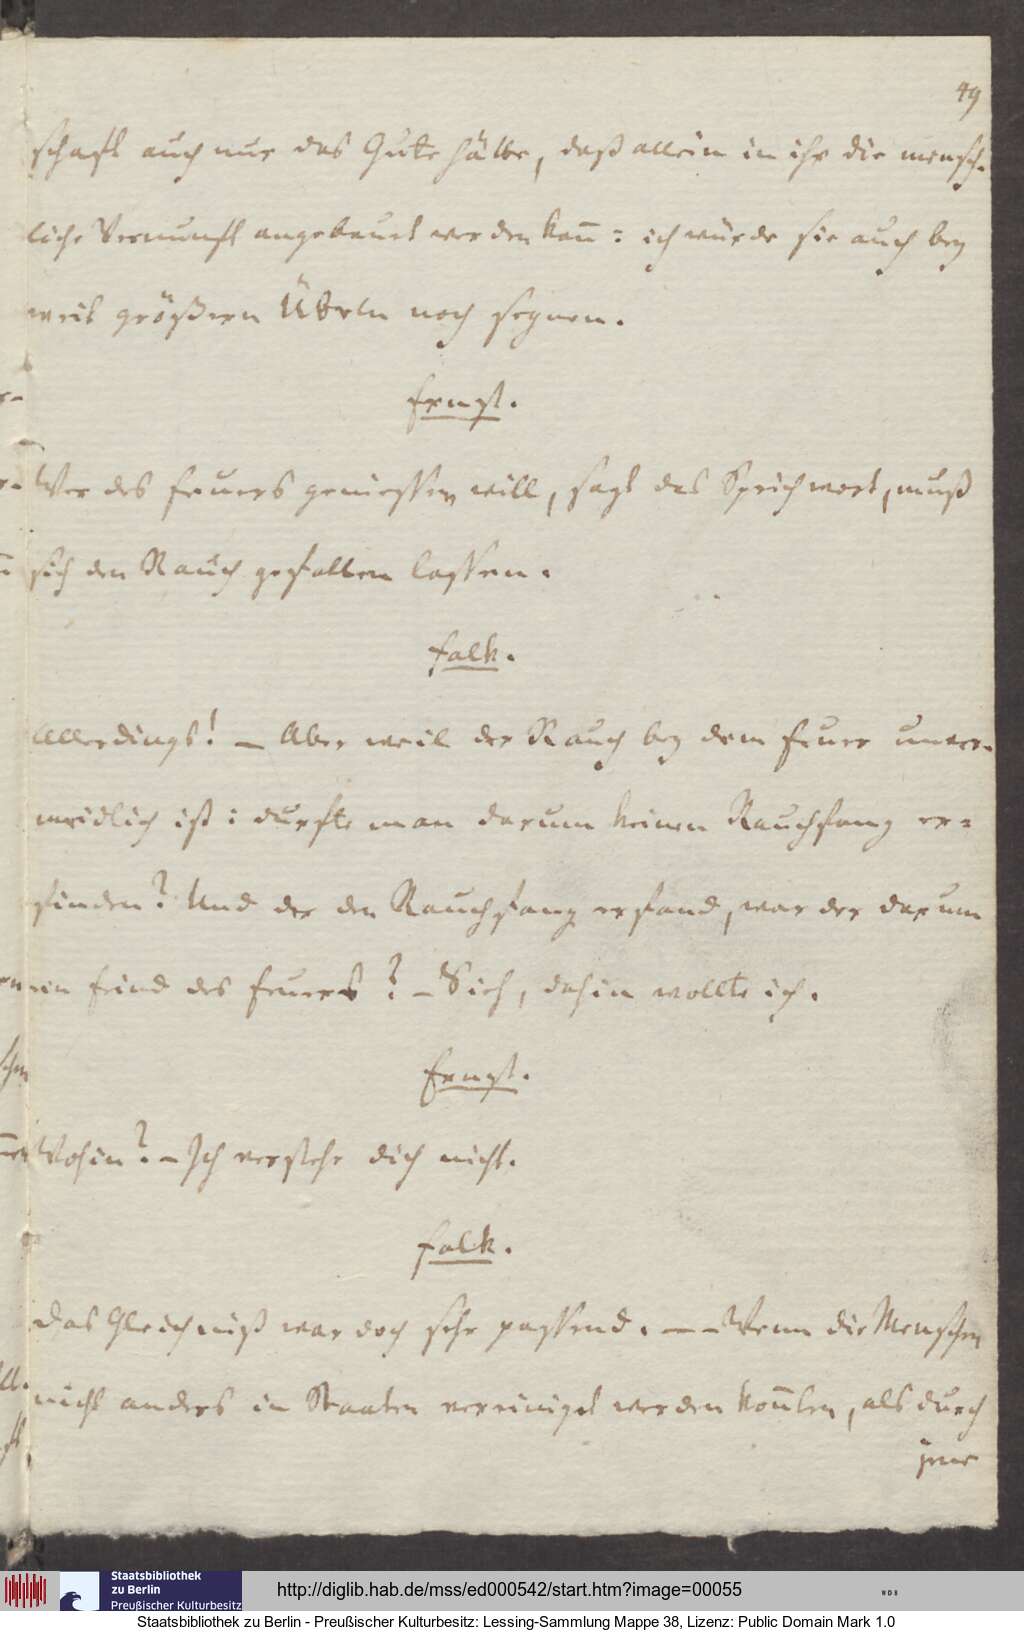 49
schaft auch nur das Gute hätte, daß allein in ihr die mensch-
liche Vernunft angebauet werden kañ: ich würde sie auch bey
weit größern Übeln noch segnen.
Ernst.
Wer des Feuers geniessen will, sagt das Sprichwort, muß
sich den Rauch gefallen lassen.
Falk.
Allerdings! — Aber weil der Rauch bey dem Feuer unver-
meidlich ist: durfte man darum keinen Rauchfang er=
finden? Und der den Rauchfang erfand, war der darum
ein Feind des Feuers? — Sieh, dahin wollte ich.
Ernst.
Wohin? — Ich verstehe dich nicht.
Falk.
Das Gleichniß war doch sehr passend. — — Wenn die Menschen
nicht anders in Staaten vereiniget werden koñten, als durch
jene
Staatsbibliothek
zu Berlin
Preußischer Kulturbesitz
http://diglib.hab.de/mss/ed000542/start.htm?image=00055
WDB
Staatsbibliothek zu Berlin - Preußischer Kulturbesitz: Lessing-Sammlung Mappe 38, Lizenz: Public Domain Mark 1.0